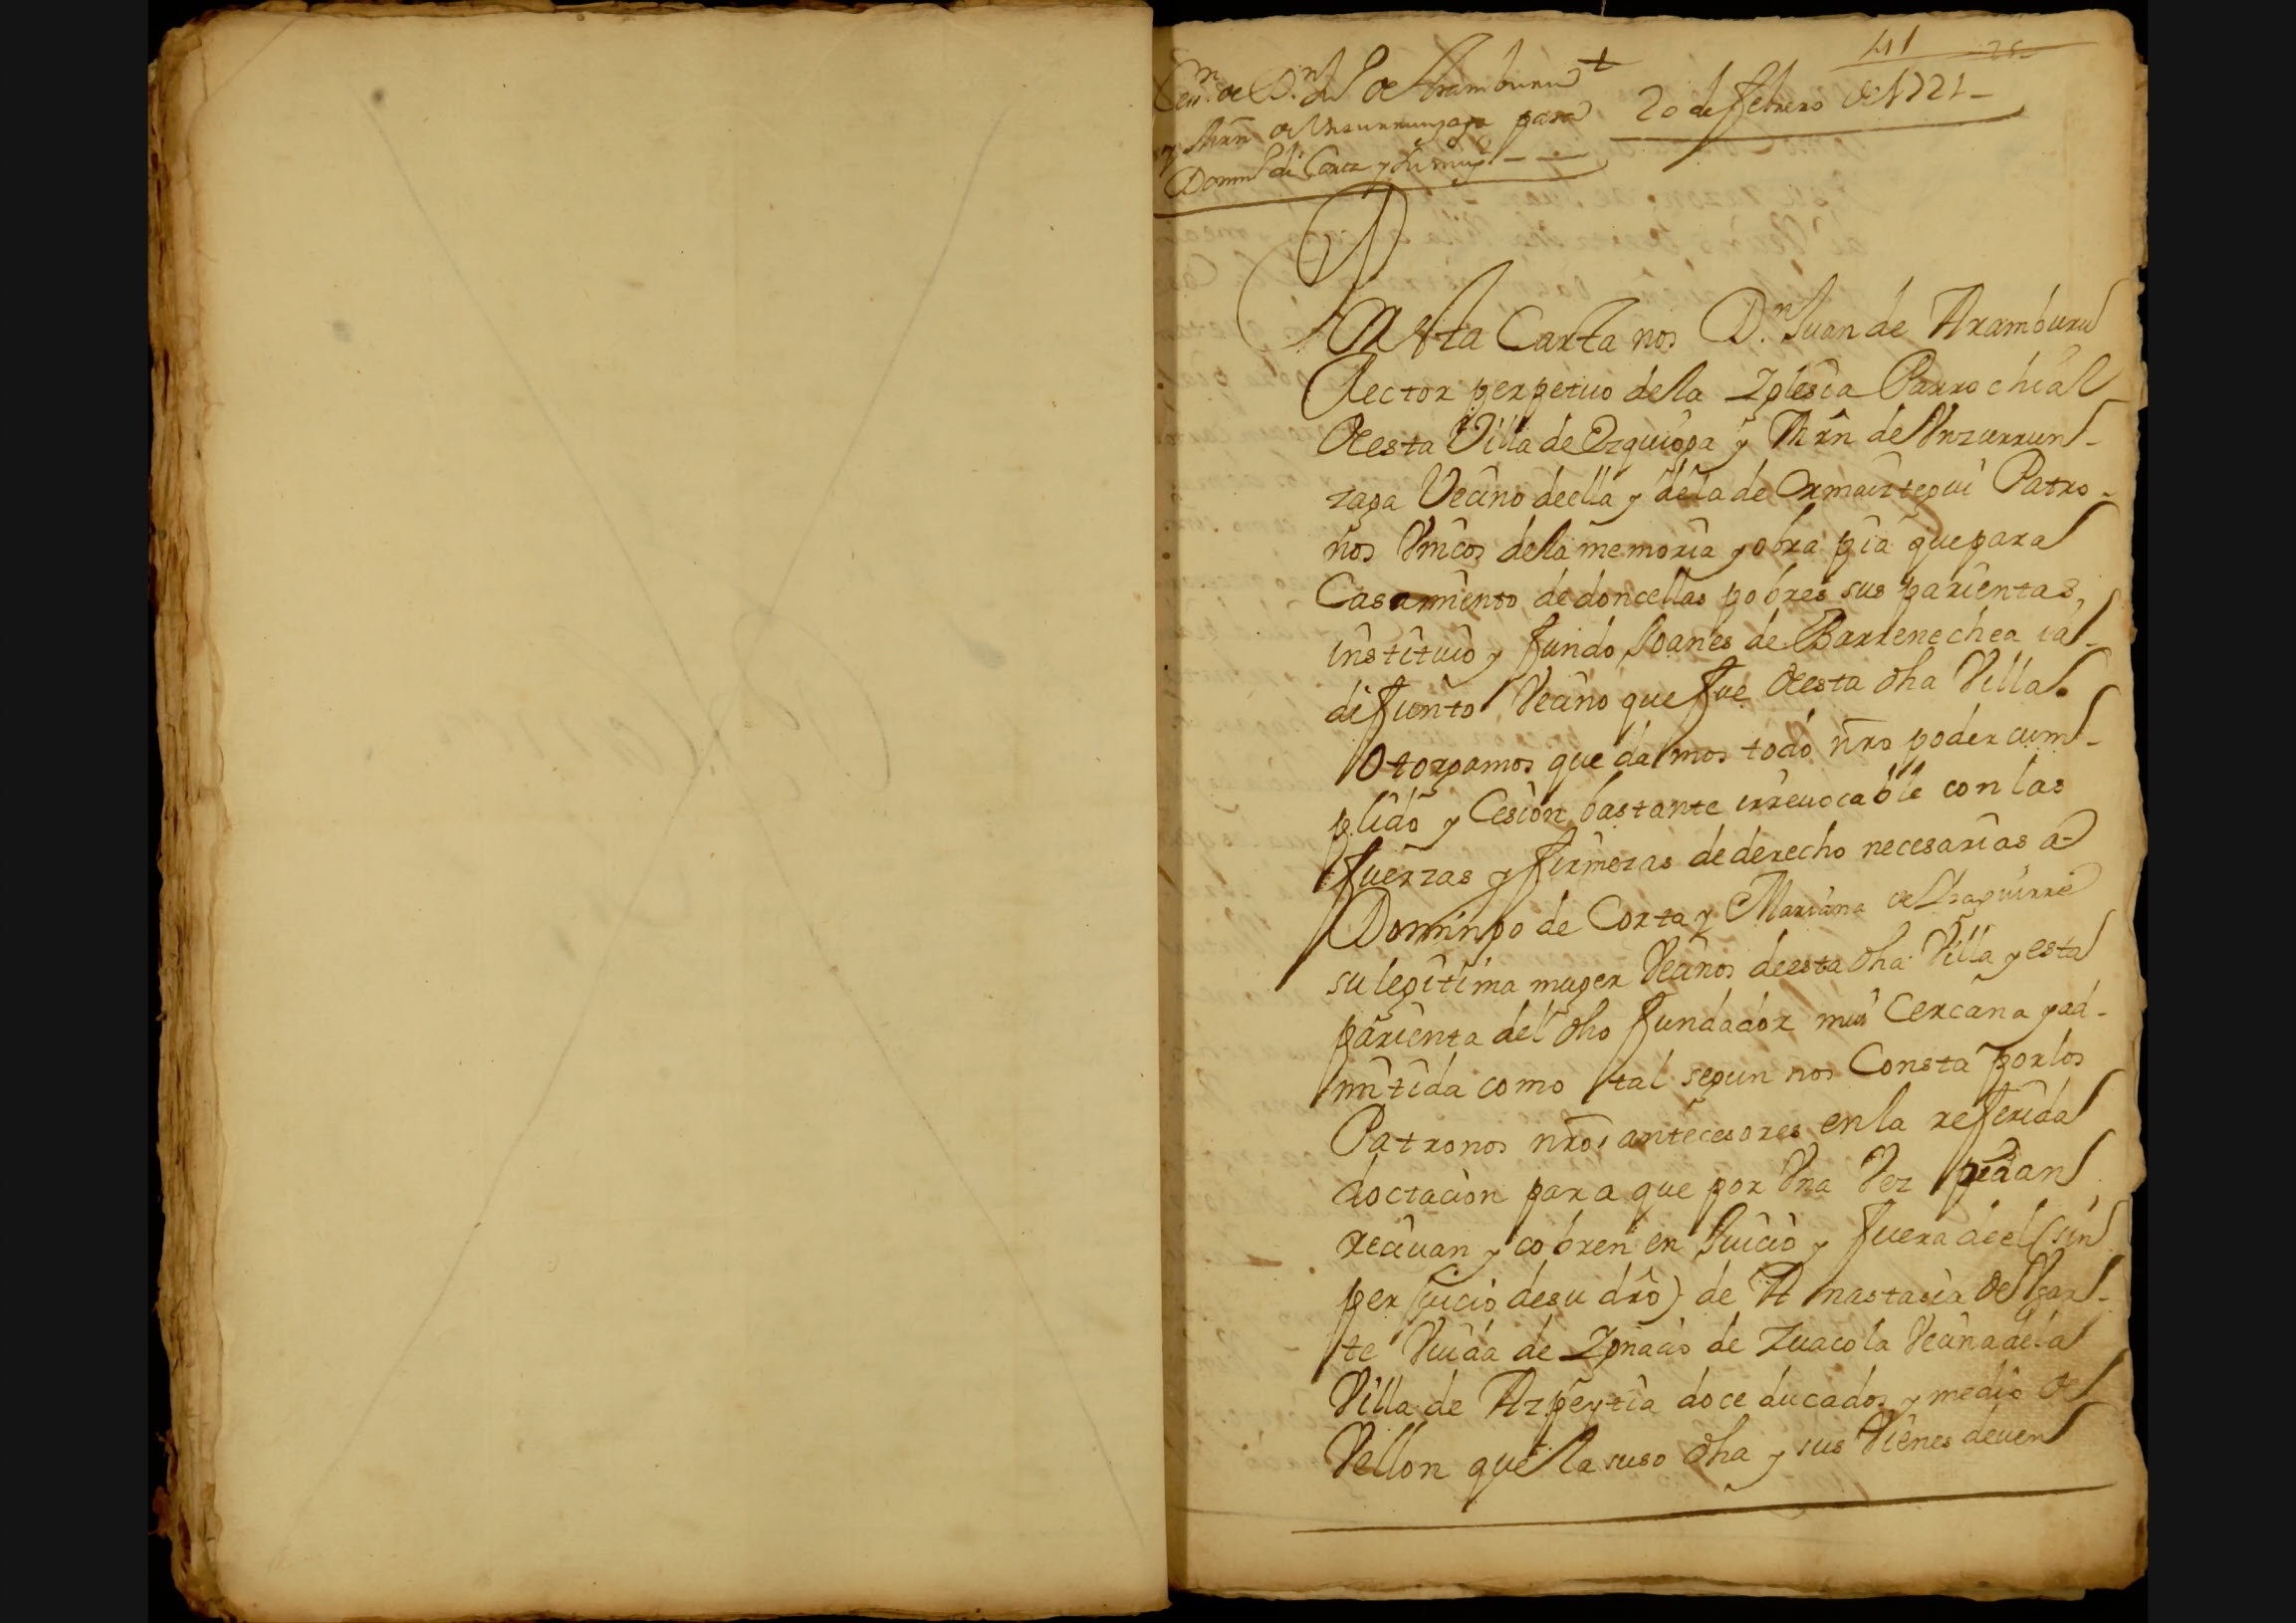 41
20 de febrero de 1721 -
Cen. de Dn. Ju de Aramburu
y Mrn de Unzurrunzaga para
Domin. de Corta y su mug.
En esta Carta nos Dn. Juan de Aramburu
Rector perpetuo de la Iglesia Parrochial
de esta Villa de Ezquioga y Mrn de Unzurrun-
zaga Vecino de ella y de la de Ormaiztegui Patro-
nos Unicos de la memoria y obra pia que para
Casamiento de doncellas pobres sus parientas,
instituio y fundo Joanes de Barrenechea ia
difunto Vecino que fue de esta dha Villa.
Otorgamos que damos todo nro poder cum-
plido y Cesion bastante irreuocable con las
fuerzas y firmezas de derecho necesarias a
Domingo de Corta y Mariana de Izaguirre
su legitima muger Vecinos de esta dha Villa y esta
parienta del dho fundador mui Cercana y ad-
mitida como tal segun nos Consta por los
Patronos nros antecesores en la referida
doctacion para que por Una Vez pidan
reciuan y cobren en Juicio y fuera de el (sin
perjuicio de su dro) de Anastasia de Ugar-
te Viuda de Ignacio de Zuacola Vecina de la
Villa de Azpeytia doce ducados y medio de
Vellon que la suso dha y sus Vienes deuen